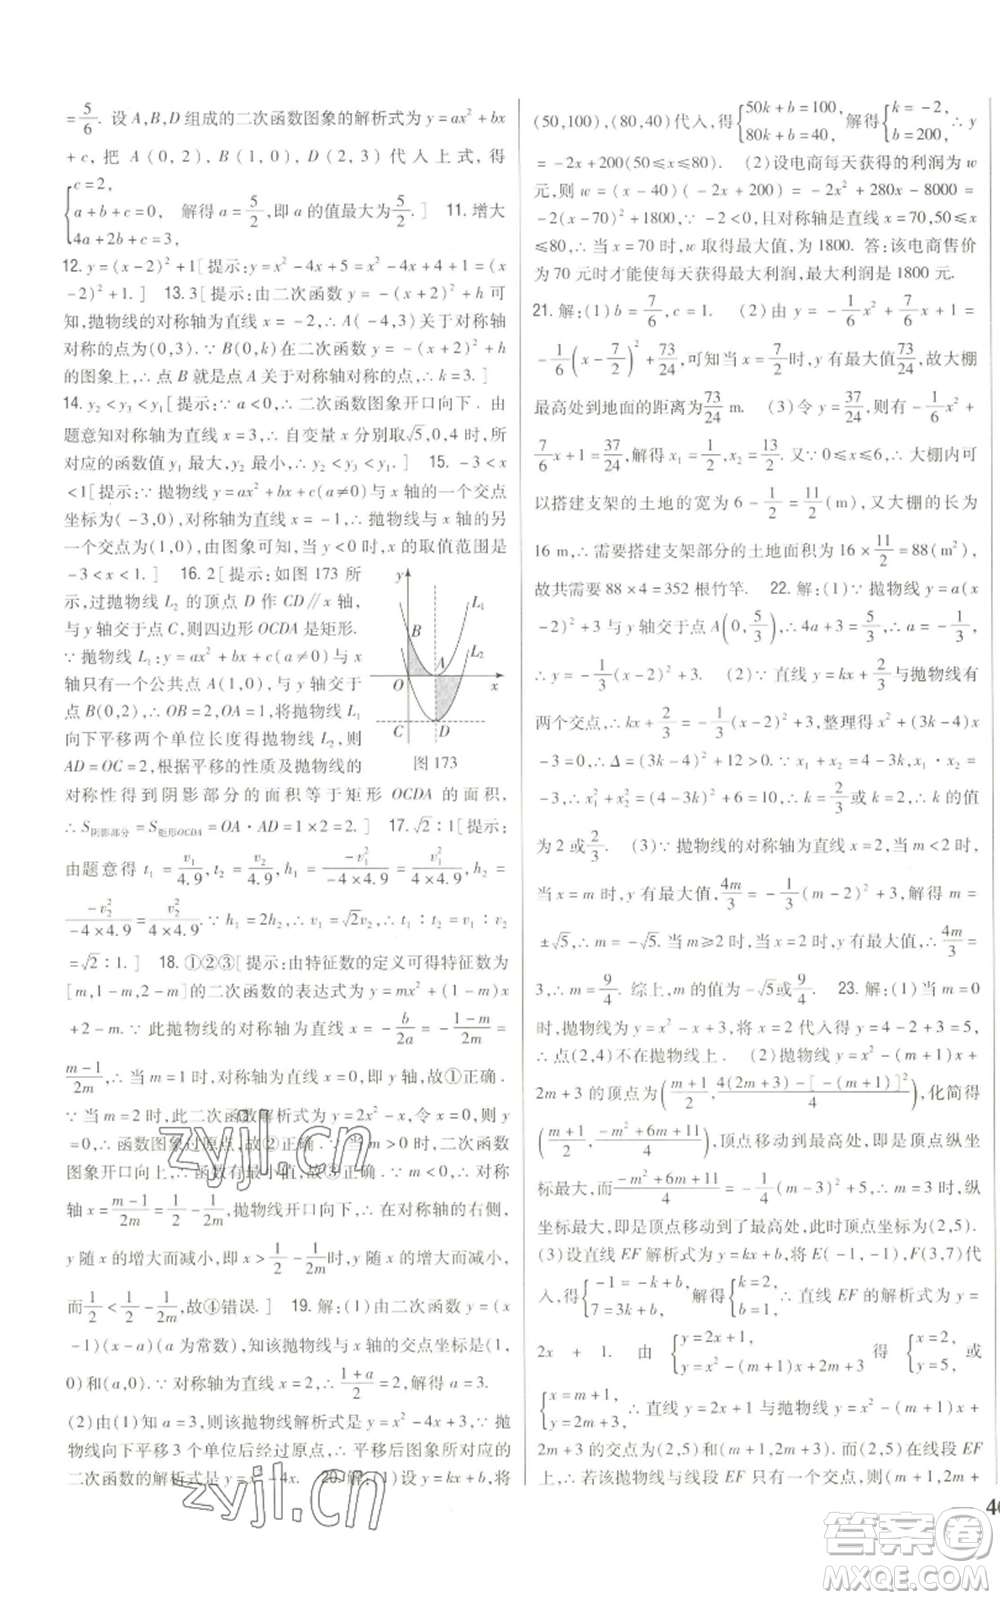 =5/6. 设 A,B,D 组成的二次函数图象的解析式为 y=ax²+bx
+c, 把 A(0,2), B(1,0), D(2,3) 代入上式, 得
{c=2, a+b+c=0, 4a+2b+c=3, 解得 a=5/2,即 a 的值最大为5/2.] 11. 增大
12. y=(x-2)²+1[提示:y=x²-4x+5=x²-4x+4+1=(x
-2)²+1.] 13. 3[提示:由二次函数 y=-(x+2)²+h 可
知,抛物线的对称轴为直线 x=-2,∴A(-4,3)关于对称轴
对称的点为(0,3).∵B(0,k)在二次函数 y=-(x+2)²+h
的图象上,∴点 B 就是点 A 关于对称轴对称的点,∴k=3.]
14. y₂<y₃<y₁[提示:∵a<0,∴二次函数图象开口向下. 由
题意知对称轴为直线 x=3,∴自变量 x 分别取√5,0,4 时,所
对应的函数值 y₁ 最大,y₂ 最小,∴y₂<y₃<y₁.] 15. -3<x
<1[提示:∵抛物线 y=ax²+bx+c(a≠0)与 x 轴的一个交点
坐标为(-3,0),对称轴为直线 x=-1,∴抛物线与 x 轴的另
一个交点为(1,0),由图象可知,当 y<0 时,x 的取值范围是
-3<x<1.] 16. 2[提示:如图 173 所
示,过抛物线 L₂ 的顶点 D 作 CD∥x 轴,
与 y 轴交于点 C,则四边形 OCDA 是矩形.
∵抛物线 L₁:y=ax²+bx+c(a≠0)与 x
轴只有一个公共点 A(1,0),与 y 轴交于
点 B(0,2),∴OB=2,OA=1,将抛物线 L₁
向下平移两个单位长度得抛物线 L₂,则
AD=OC=2,根据平移的性质及抛物线的
y
L₁
B
A
L₂
O
x
C
D
图 173
对称性得到阴影部分的面积等于矩形 OCDA 的面积,
∴S阴影部分=S矩形OCDA=OA·AD=1×2=2.] 17. √2:1[提示:
由题意得 t₁=v₁/4.9,t₂=v₂/4.9,h₁=-v₁²/(-4×4.9)=v₁²/(4×4.9),h₂=
-v₂²/(-4×4.9)=v₂²/(4×4.9).∵h₁=2h₂,∴v₁=√2v₂,∴t₁:t₂=v₁:v₂
=√2:1.] 18. ①②③[提示:由特征数的定义可得特征数为
[m,1-m,2-m]的二次函数的表达式为 y=mx²+(1-m)x
+2-m. ∵此抛物线的对称轴为直线 x=-b/2a=-(1-m)/2m=
(m-1)/2m,∴当 m=1 时,对称轴为直线 x=0,即 y 轴,故①正确.
∵当 m=2 时,此二次函数解析式为 y=2x²-x,令 x=0,则 y
=0,∴函数图象过原点,故②正确. ∵当 m>0 时,二次函数
图象开口向上,∴函数有最小值,故③正确. ∵m<0,∴对称
轴 x=(m-1)/2m=1/2-1/2m,抛物线开口向下,∴在对称轴的右侧,
y 随 x 的增大而减小,即 x>1/2-1/2m时,y 随 x 的增大而减小,
而1/2<1/2-1/2m,故④错误.] 19. 解:(1)由二次函数 y=(x
-1)(x-a)(a 为常数),知该抛物线与 x 轴的交点坐标是(1,
0)和(a,0).∵对称轴为直线 x=2,∴(1+a)/2=2,解得 a=3.
(2)由(1)知 a=3,则该抛物线解析式是 y=x²-4x+3,∴抛
物线向下平移 3 个单位后经过原点,∴平移后图象所对应的
二次函数的解析式是 y=x²-4x. 20. 解:(1)设 y=kx+b,将
(50,100),(80,40)代入,得{50k+b=100, 80k+b=40, 解得{k=-2, b=200, ∴y
=-2x+200(50≤x≤80). (2)设电商每天获得的利润为 w
元,则 w=(x-40)(-2x+200)=-2x²+280x-8000=
-2(x-70)²+1800,∵-2<0,且对称轴是直线 x=70,50≤x
≤80,∴当 x=70 时,w 取得最大值,为 1800. 答:该电商售价
为 70 元时才能使每天获得最大利润,最大利润是 1800 元.
21. 解:(1)b=7/6,c=1. (2)由 y=-1/6x²+7/6x+1=
-1/6(x-7/2)²+73/24,可知当 x=7/2时,y 有最大值73/24,故大棚
最高处到地面的距离为73/24 m. (3)令 y=37/24,则有-1/6x²+
7/6x+1=37/24,解得 x₁=1/2,x₂=13/2. 又∵0≤x≤6,∴大棚内可
以搭建支架的土地的宽为 6-1/2=11/2(m),又大棚的长为
16 m,∴需要搭建支架部分的土地面积为 16×11/2=88(m²),
故共需要 88×4=352 根竹竿. 22. 解:(1)∵抛物线 y=a(x
-2)²+3 与 y 轴交于点 A(0,5/3),∴4a+3=5/3,∴a=-1/3,
∴y=-1/3(x-2)²+3. (2)∵直线 y=kx+5/3与抛物线有
两个交点,∴kx+5/3=-1/3(x-2)²+3,整理得 x²+(3k-4)x
-3=0,∴Δ=(3k-4)²+12>0. ∵x₁+x₂=4-3k,x₁·x₂=
-3,∴x₁²+x₂²=(4-3k)²+6=10,∴k=2/3或 k=2,∴k 的值
为 2 或2/3. (3)∵抛物线的对称轴为直线 x=2,当 m<2 时,
当 x=m 时,y 有最大值,4m/3=-1/3(m-2)²+3,解得 m=
±√5,∴m=-√5. 当 m≥2 时,当 x=2 时,y 有最大值,∴4m/3=
3,∴m=9/4. 综上,m 的值为-√5或9/4. 23. 解:(1)当 m=0
时,抛物线为 y=x²-x+3,将 x=2 代入得 y=4-2+3=5,
∴点(2,4)不在抛物线上. (2)抛物线 y=x²-(m+1)x+
2m+3 的顶点为((m+1)/2,(4(2m+3)-[-(m+1)]²)/4),化简得
((m+1)/2,(-m²+6m+11)/4),顶点移动到最高处,即是顶点纵坐
标最大,而(-m²+6m+11)/4=-1/4(m-3)²+5,∴m=3 时,纵
坐标最大,即是顶点移动到了最高处,此时顶点坐标为(2,5).
(3)设直线 EF 解析式为 y=kx+b,将 E(-1,-1),F(3,7)代
入得{-1=-k+b, 7=3k+b, 解得{k=2, b=1, ∴直线 EF 的解析式为 y=
2x+1. 由{y=2x+1, y=x²-(m+1)x+2m+3 得{x=2, y=5, 或
{x=m+1, y=2m+3, ∴直线 y=2x+1 与抛物线 y=x²-(m+1)x+
2m+3 的交点为(2,5)和(m+1,2m+3). 而(2,5)在线段 EF
上,∴若该抛物线与线段 EF 只有一个交点,则(m+1,2m+
zyjl.cn
zyjl.cn
答案圈
MXQE.COM